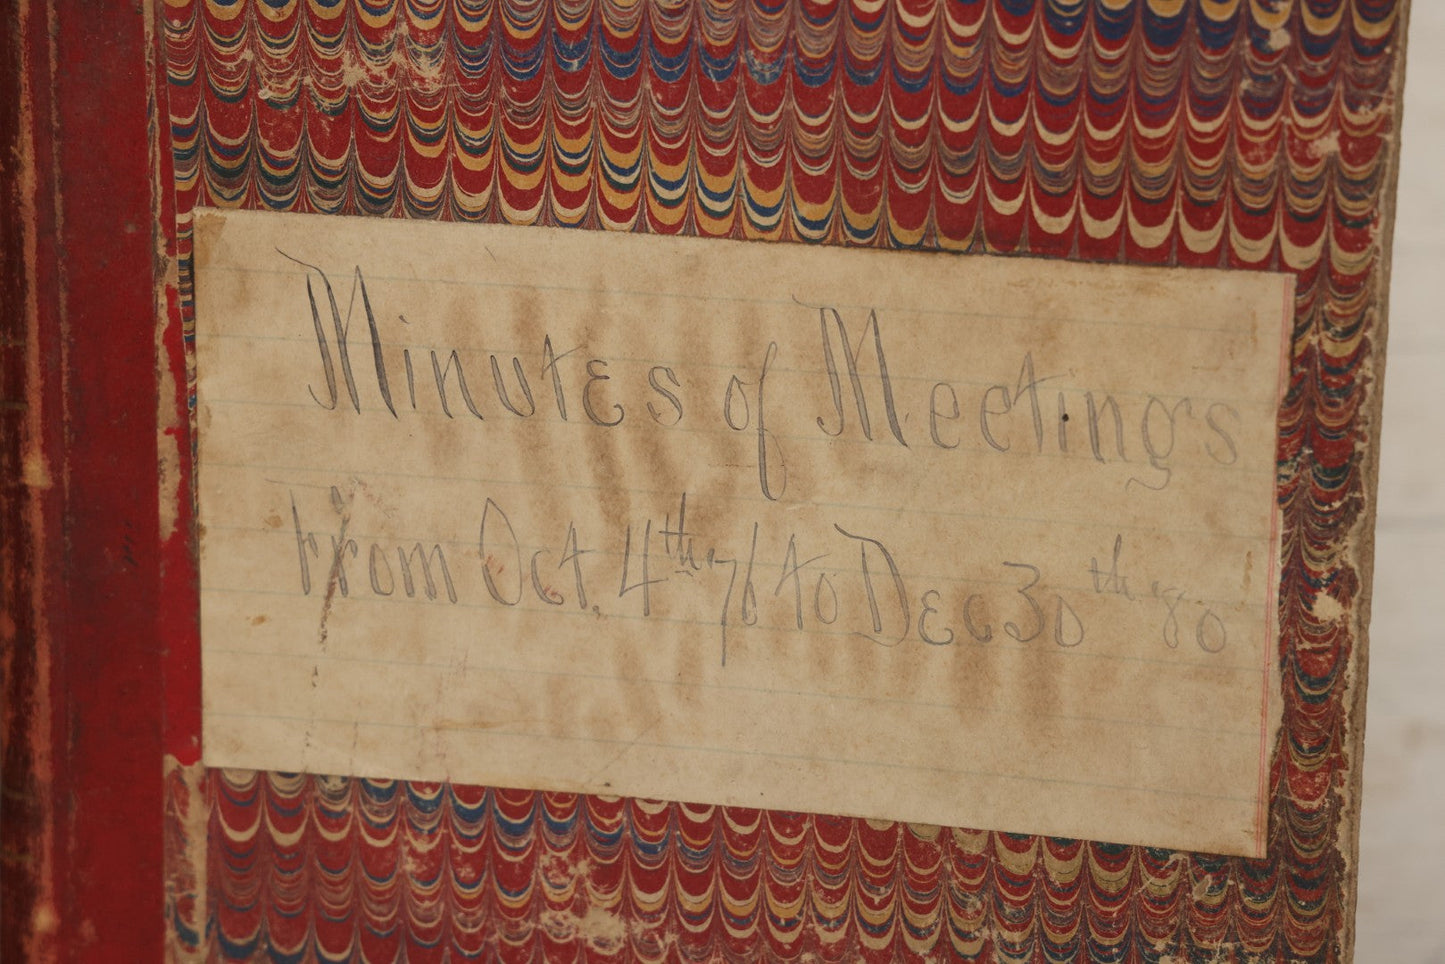 Minutes of Meetings
From Oct. 4th '76 to Dec 30th '80